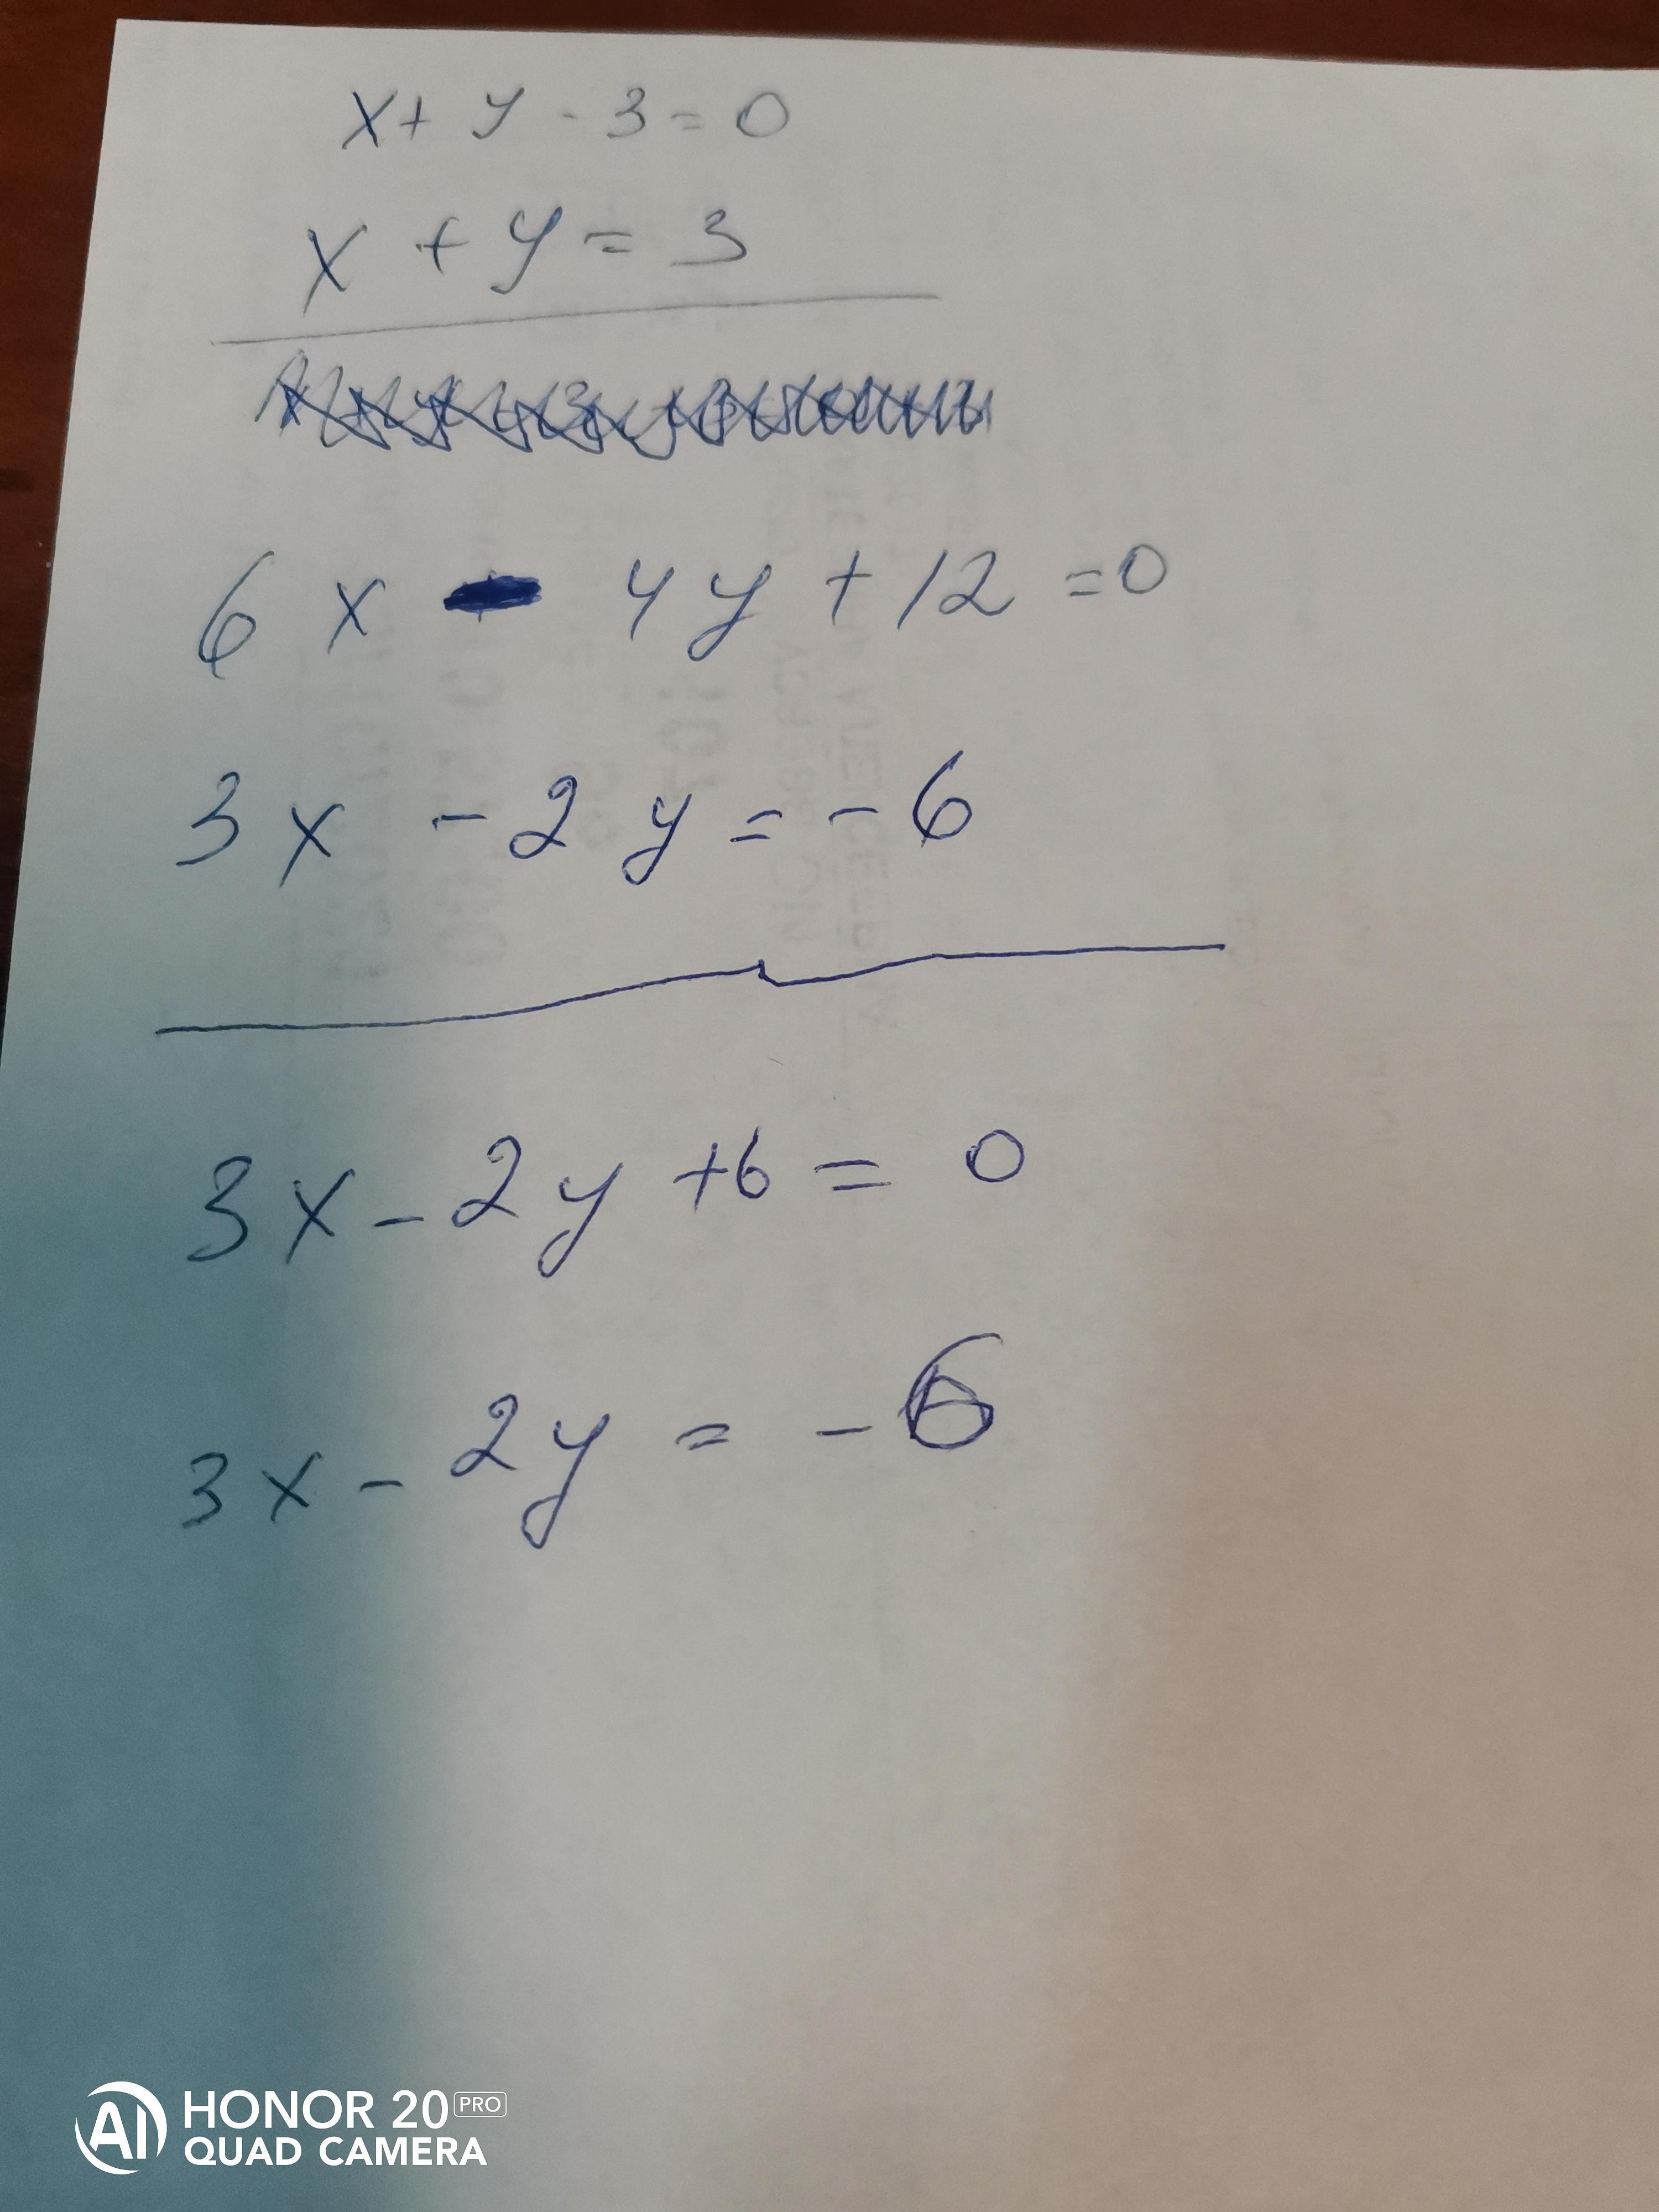 x + y - 3 = 0
x + y = 3
6x - 4y + 12 = 0
3x - 2y = -6
3x - 2y + 6 = 0
3x - 2y = -6
AI HONOR 20 PRO
QUAD CAMERA